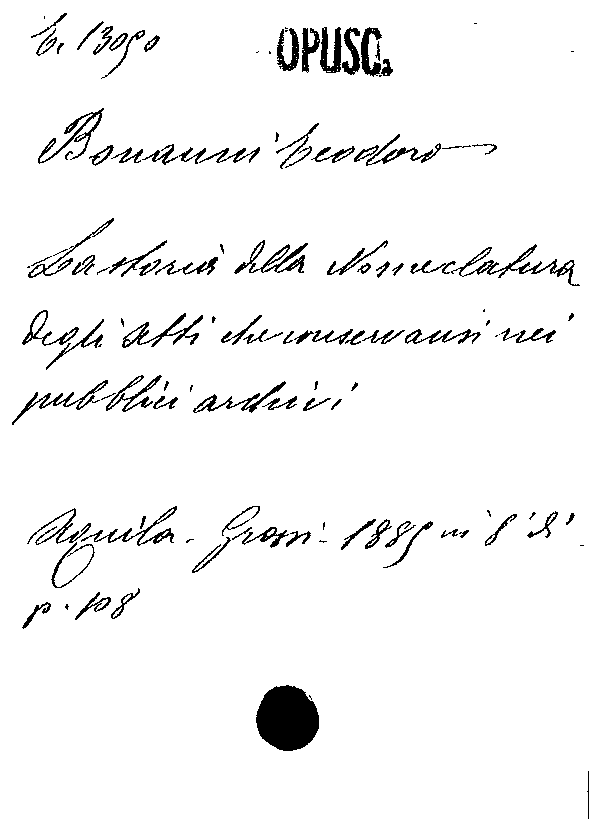 E. 13090 OPUSC.
Bonanni Teodoro
La storia della Nomeclatura
degli Atti che conservansi nei
pubblici archivi
Aquila - Grossi - 1885 in 8° di
p. 108